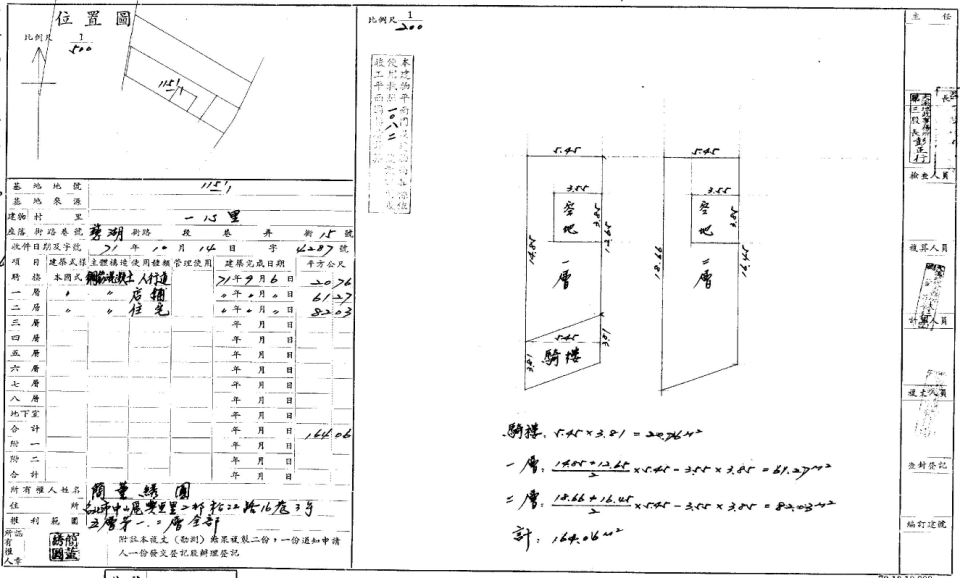 位置圖
比例尺 1/500
1151
基地地號 1151
基地來源
建物村里
座落街路巷號 碧湖 街路 段 巷 弄 街15號
收件日期及字號 71年10月14日 字4287號
項目 建築式樣 主體構造 使用種類 管理使用 建築完成日期 平方公尺
騎樓 本國式 鋼筋混凝土 人行道 71年9月6日 20.76
一層 〃 〃 店鋪 〃年〃月〃日 61.27
二層 〃 〃 住宅 〃年〃月〃日 82.03
三層 年月日
四層 年月日
五層 年月日
六層 年月日
七層 年月日
八層 年月日
地下室 年月日
合計 年月日 164.06
附一 年月日
附二 年月日
合計 年月日
所有權人姓名 簡董綉圓
住所
權利範圍 五層第一、二層全部
所有權人章
附註本複丈(勘測)結果複製二份,一份通知申請
人一份發交登記股辦理登記
比例尺 1/200
5.45
3.55
空地
3.85
14.85
12.65
一層
5.45
騎樓
3.81
3.81
5.45
3.55
空地
3.85
18.66
16.45
二層
騎樓: 5.45×3.81=20.76M²
一層: (14.85+12.65)/2 ×5.45-3.55×3.85=61.27M²
二層: (18.66+16.45)/2 ×5.45-3.55×3.85=82.03M²
計: 164.06M²
主任
檢查人員
複算人員
計算人員
複丈人員
查封登記
編訂建號